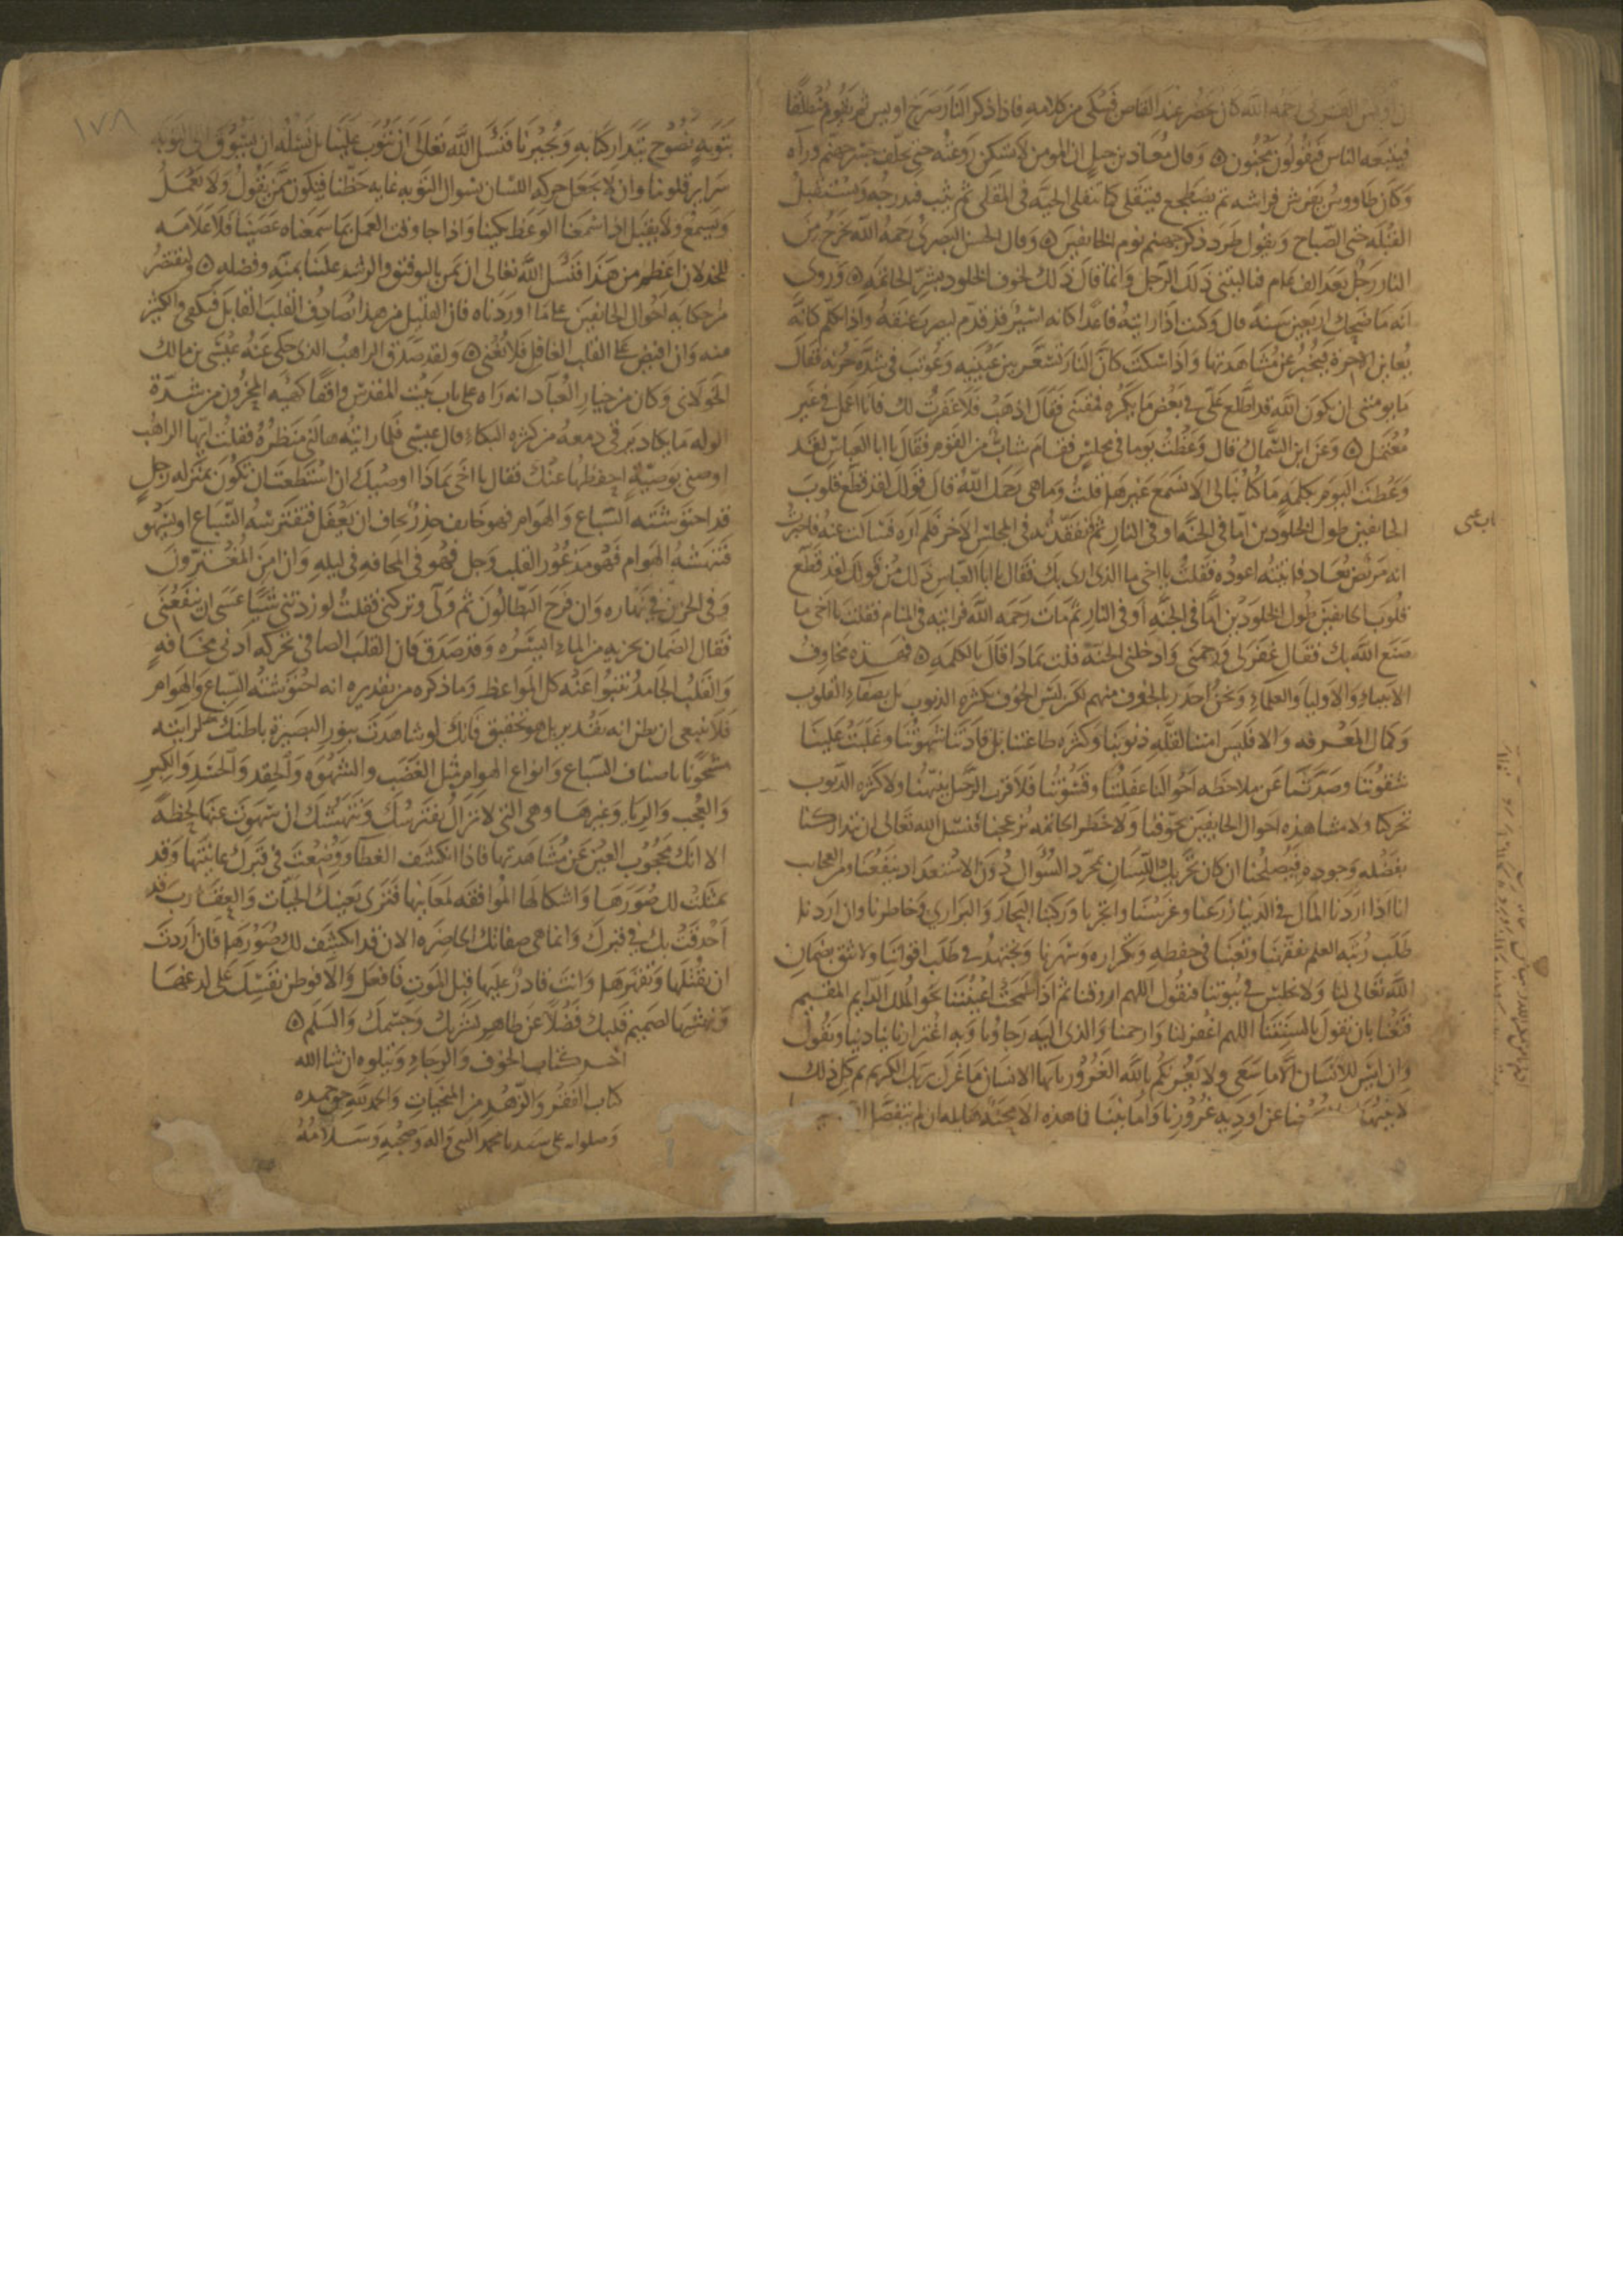 ان اويس القرني رحمه الله كان يحضر عند القاص فيبكي من كلامه فاذا ذكر النار صرخ اويس ثم يقوم منطلقا
فيتبعه الناس فيقولون مجنون ۞ وقال معاذ بن جبل ان المومن لا يسكن روعته حتى يخلف جسر جهنم وراه
وكان طاووس يفرش فراشه ثم يضطجع فيتقلى كما تتقلى الحبة في المقلى ثم يثب فيدرجه ويستقبل
القبلة حتى الصباح ويقول طرد ذكر جهنم نوم الخايفين ۞ وقال الحسن البصري رحمه الله يخرج من
النار رجل بعد الف عام فياليتني ذلك الرجل وانما قال ذلك لخوف الخلود بشر الخاتمه ۞ وروي
انه ما ضحك اربعين سنة قال وكنت اذا رايته قاعدا كانه اسير قد قدم ليضرب عنقه واذا تكلم كانه
يعاين الاخرة فيخبر عن مشاهدتها واذا سكت كان النار تسعر بين عينيه وعوتب في شدة حزنه فقال
ما يومنني ان يكون الله قد اطلع علي في بعض ما يكره فمقتني فقال اذهب فلا غفرت لك فانا اعمل في غير
معتمل ۞ وعن ابن السماك قال وعظت يوما في مجلس فقام شاب من القوم فقال يا ابا العباس لقد
وعظت اليوم بكلمة ما كنا نبالي الا نسمع غيرها قلت وما هي رحمك الله قال قولك لقد قطع قلوب
الخايفين طول الخلودين اما في الجنة او في النار ثم تفقدته في المجلس الاخر فلم اره فسالت عنه فاخبرت
انه مريض يعاد فاتيته اعوده فقلت يا اخي ما الذي ارى بك فقال يا ابا العباس ذلك من قولك لقد قطع
قلوب الخايفين طول الخلودين اما في الجنة او في النار ثم مات رحمه الله فرايته في المنام فقلت يا اخي ما
صنع الله بك فقال غفر لي ورحمني وادخلني الجنة قلت بماذا قال بالكلمة ۞ فهذه مخاوف
الانبياء والاوليا والعلماء ونحن اجدر بالخوف منهم لكن ليس الخوف بكثره الذنوب بل بصفاء القلوب
وكمال المعرفه والا فليس امننا لقلة ذنوبنا وكثره طاعتنا بل قادتنا شهوتنا وغلبت علينا
شقوتنا وصدتنا عن ملاحظه احوالنا غفلتنا وقسوتنا فلا قرب الرحيل ينبهنا ولا كثره الذنوب
تحركنا ولا مشاهده احوال الخايفين تخوفنا ولا خطر الخاتمه يزعجنا فنسل الله تعالى ان يتداركنا
بفضله وجوده فيصلحنا ان كان تحريك اللسان بمجرد السوال دون الاستعداد ينفعنا ومن العجايب
انا اذا اردنا المال في الدنيا زرعنا وغرسنا واتجرنا وركبنا البحار والبراري وخاطرنا وان اردنا
طلب رتبة العلم تفقهنا وتعبنا في حفظه وتكراره وسهرنا ونجتهد في طلب اقواتنا ولا نثق بضمان
الله تعالى لنا ولا نجلس في بيوتنا فنقول اللهم ارزقنا ثم اذا طمحت اعيننا نحو الملك الدايم المقيم
قنعنا بان نقول بالسنتنا اللهم اغفر لنا وارحمنا والذي اليه رجاونا وبه اغترارنا ينادينا ويقول
وان ليس للانسان الا ما سعى ولا يغرنكم بالله الغرور يا ايها الانسان ما غرك بربك الكريم ثم كل ذلك
لا ينبهنا عن اودية غرورنا وامانينا فما هذه الا محنة هايله ان لم يتفضل
ابن عيسى
١٧٨
بتوبة نصوح يتداركنا به ويجبرنا فنسل الله تعالى ان يتوب علينا بل نسله ان يشوق الى التوبه
سراير قلوبنا وان لا يجعل حركه اللسان بسوال التوبه غايه حظنا فنكون ممن يقول ولا يعمل
ويسمع ولا يقبل اذا سمعنا الوعظ بكينا واذا جا وقت العمل بما سمعناه عصينا فلا علامه
للخذلان اعظم من هذا فنسل الله تعالى ان يمن بالتوفيق والرشد علينا بمنه وفضله ۞ ولنقتصر
من حكايه احوال الخايفين على ما اوردناه فان القليل من هذا يصادف القلب القابل فيكفي والكثير
منه وان افيض على القلب الغافل فلا يغني ۞ ولقد صدق الراهب الذي حكى عنه عيسى بن مالك
الخولاني وكان من خيار العباد انه راه على باب بيت المقدس واقفا كهيه المحزون من شدة
الوله ما يكاد يرقى دمعه من كثره البكاء قال عيسى فلما رايته هالني منظره فقلت ايها الراهب
اوصني بوصية احفظها عنك فقال يا اخي بماذا اوصيك ان استطعت ان تكون بمنزله رجل
قد احتوشته السباع والهوام فهو خايف حذر يخاف ان يغفل فتفترسه السباع او يسهو
فتنهشه الهوام فهو مذعور القلب وجل فهو في المخافه في ليله وان امن المغترون
وفي الحزن في نهاره وان فرح البطالون ثم ولى وتركني فقلت لو زدتني شيا عسى ان ينفعني
فقال الضمان يجزيه من الماء ايسره وقد صدق فان القلب الصافي تحركه ادنى مخافه
والقلب الجامد تنبوا عنه كل المواعظ وما ذكره من تقديره انه احتوشته السباع والهوام
فلا ينبغي ان يظن انه تقدير بل هو تحقيق فانك لو شاهدت بنور البصيرة باطنك لرايته
مشحونا باصناف السباع وانواع الهوام مثل الغضب والشهوه والحقد والحسد والكبر
والعجب والرياء وغيرها وهي التي لا تزال تفترسك وتنهشك ان سهوت عنها لحظة
الا انك محجوب العين عن مشاهدتها فاذا انكشف الغطا ووضعت في قبرك عاينتها وقد
تمثلت لك صورها واشكالها الموافقه لمعانيها فترى بعينك الحيات والعقارب قد
احدقت بك في قبرك وانما هي صفاتك الحاضره الان قد انكشف لك صورها فان اردت
ان تقتلها وتقهرها وانت قادر عليها قبل الموت فافعل والا فوطن نفسك على لدغها
ونهشها لصميم قلبك فضلا عن ظاهر بشرتك وجسمك والسلم ۞
اخر كتاب الخوف والرجاء ويتلوه ان شا الله
كتاب الفقر والزهد من المنجيات والحمد لله حق حمده
وصلواته على سيدنا محمد النبي واله وصحبه وسلامه